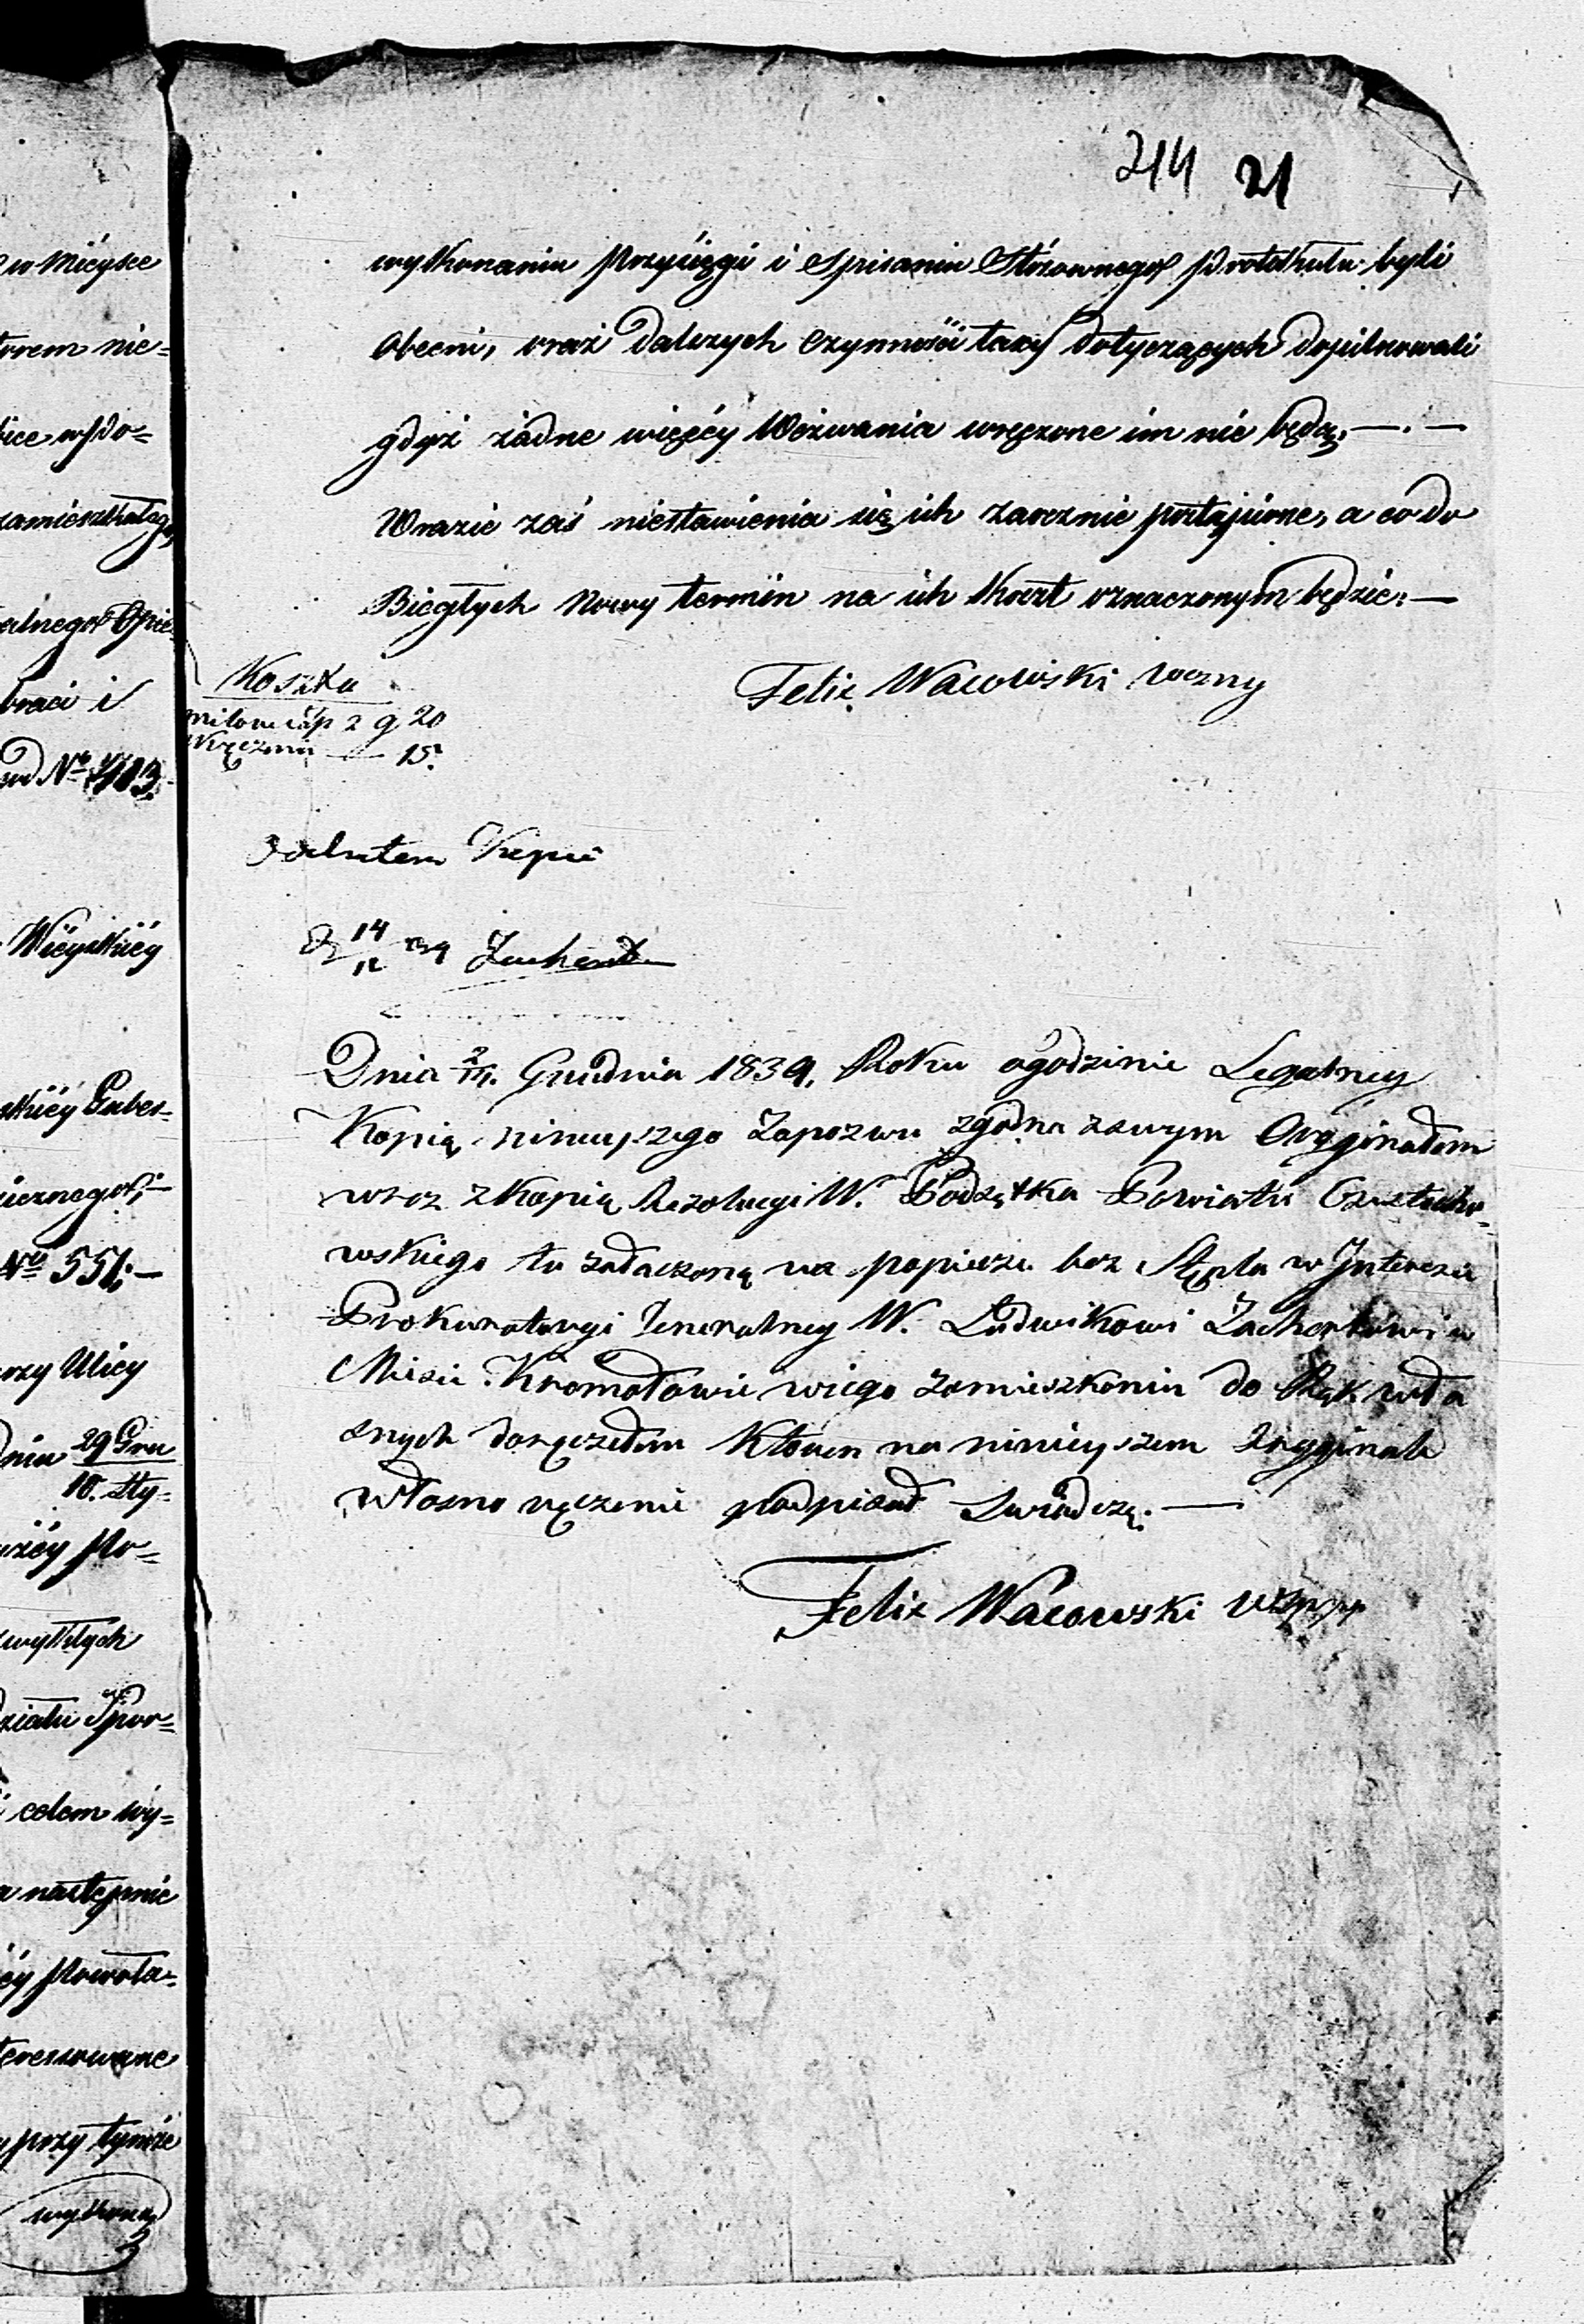 214 21
wykonaniu Przysięgi i Spisaniu Stósownego Protokułu byli
obecni, oraz dalszych Czynności taxy dotyczących dopilnowali
gdyż żadne więcéy Wezwania wręczone im nie będą. —.—
W razie zaś niestawienia się ich zaocznie postąpione, a co do
Biegłych Nowy termin na ich Koszt oznaczonym będzie. —
Felix Wacowski wozny
Koszta
milowe zł 2 g 20
Wręczenia — 15.
Odebrałem Kopie
14/12 839 Zachert
Dnia 2/14. Grudnia 1839. Roku o godzinie Legalney
Kopią ninieyszego Zapozwu zgodną z swym Orginałem
wraz z Kopią Rezolucyi W. Podsędka Powiatu Częstocho-
wskiego tu załączoną na papierze bez Stępla w Interesie
Prokuratoryi Jeneralney W. Ludwikowi Zachertowi w
Mieście Kromołowie w iego zamieszkaniu do Rąk wła
snych doręczyłem który na ninieyszem Oryginale
własno ręcznie podpisał Świadczę. —
Felix Wacowski
w Mieysce
torem nie=
zamieszkałego,
alnego Opie=
braci i
pod N° 413.
Wieyskiéy
skiéy Guber-
N° 551. —
przy Ulicy
dnia 29 Gru
10. Sty=
wykłych
działu Spor=
celem wy=
a następnie
Powoła=
teressowane
przy tymże
wykonan